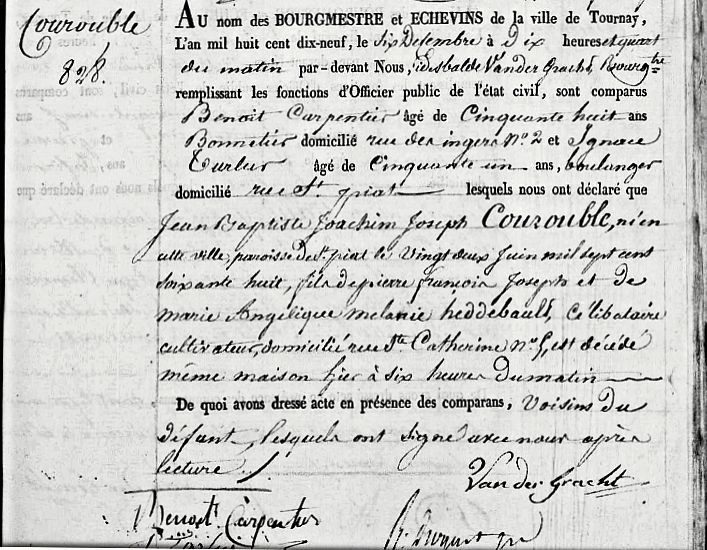 Courouble
828.
AU nom des BOURGMESTRE et ECHEVINS de la ville de Tournay,
L'an mil huit cent dix-neuf, le Six Decembre à Dix heures et quart
du matin par-devant Nous, Vander Gracht Bourgtre
remplissant les fonctions d'Officier public de l'état civil, sont comparus
Benoit Carpentier âgé de Cinquante huit ans
Bonnetier domicilié rue des ingers No. 2 et Ignace
Turlur âgé de Cinquante un ans, boulanger
domicilié rue St. piat lesquels nous ont déclaré que
Jean Baptiste Joachim Joseph Courouble, né en
cette ville, paroisse de St. piat le Vingt deux Juin mil sept cent
soixante huit, fils de pierre françois Joseph et de
marie Angélique melanie heddebault, Célibataire
cultivateur, domicilié rue Ste. Catherine No. 5, est décédé
même maison hier à six heures du matin
De quoi avons dressé acte en présence des comparans, Voisins du
défunt, lesquels ont signé avec nous après
lecture
Van der Gracht
Benoit Carpentier